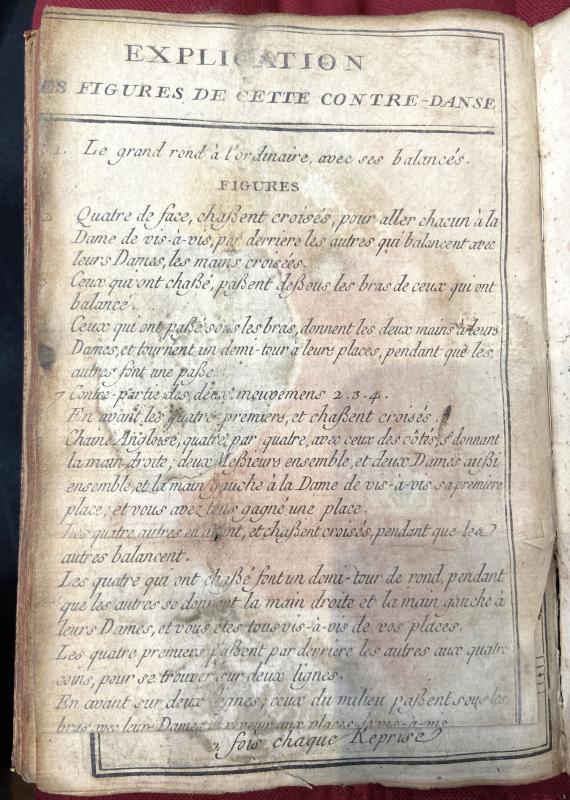 EXPLICATION
ES FIGURES DE CETTE CONTRE-DANSE
1. Le grand rond à l'ordinaire, avec ses balancés.
FIGURES
Quatre de face, chaßent croisés, pour aller chacun à la
Dame de vis-à-vis, par derriere les autres qui balancent avec
leurs Dames, les mains croisées.
Ceux qui ont chaßé, paßent deßous les bras de ceux qui ont
balancé.
Ceux qui ont paßé sous les bras, donnent les deux mains à leurs
Dames, et tournent un demi-tour à leurs places, pendant que les
autres font une paße
7 Contre-partie des deux mouvemens 2.3.4.
En avant les quatre premiers, et chaßent croisés.
Chaine Angloise, quatre par quatre, avec ceux des côtés, s'donnant
la main droite, deux Meßieurs ensemble, et deux Dames außi
ensemble, et la main gauche à la Dame de vis-à-vis sa premiere
place; et vous avez tous gagné une place.
Les quatre autres en avant, et chaßent croisés, pendant que les
autres balancent.
Les quatre qui ont chaßé font un demi-tour de rond, pendant
que les autres se donnent la main droite et la main gauche à
leurs Dames, et vous êtes tous vis-à-vis de vos places.
Les quatre premiers paßent par derriere les autres aux quatre
coins, pour se trouver sur deux lignes.
En avant sur deux lignes; ceux du milieu paßent sous les
bras avec leurs Dames et revenir aux places de vis-à-vis
2 fois chaque Reprise